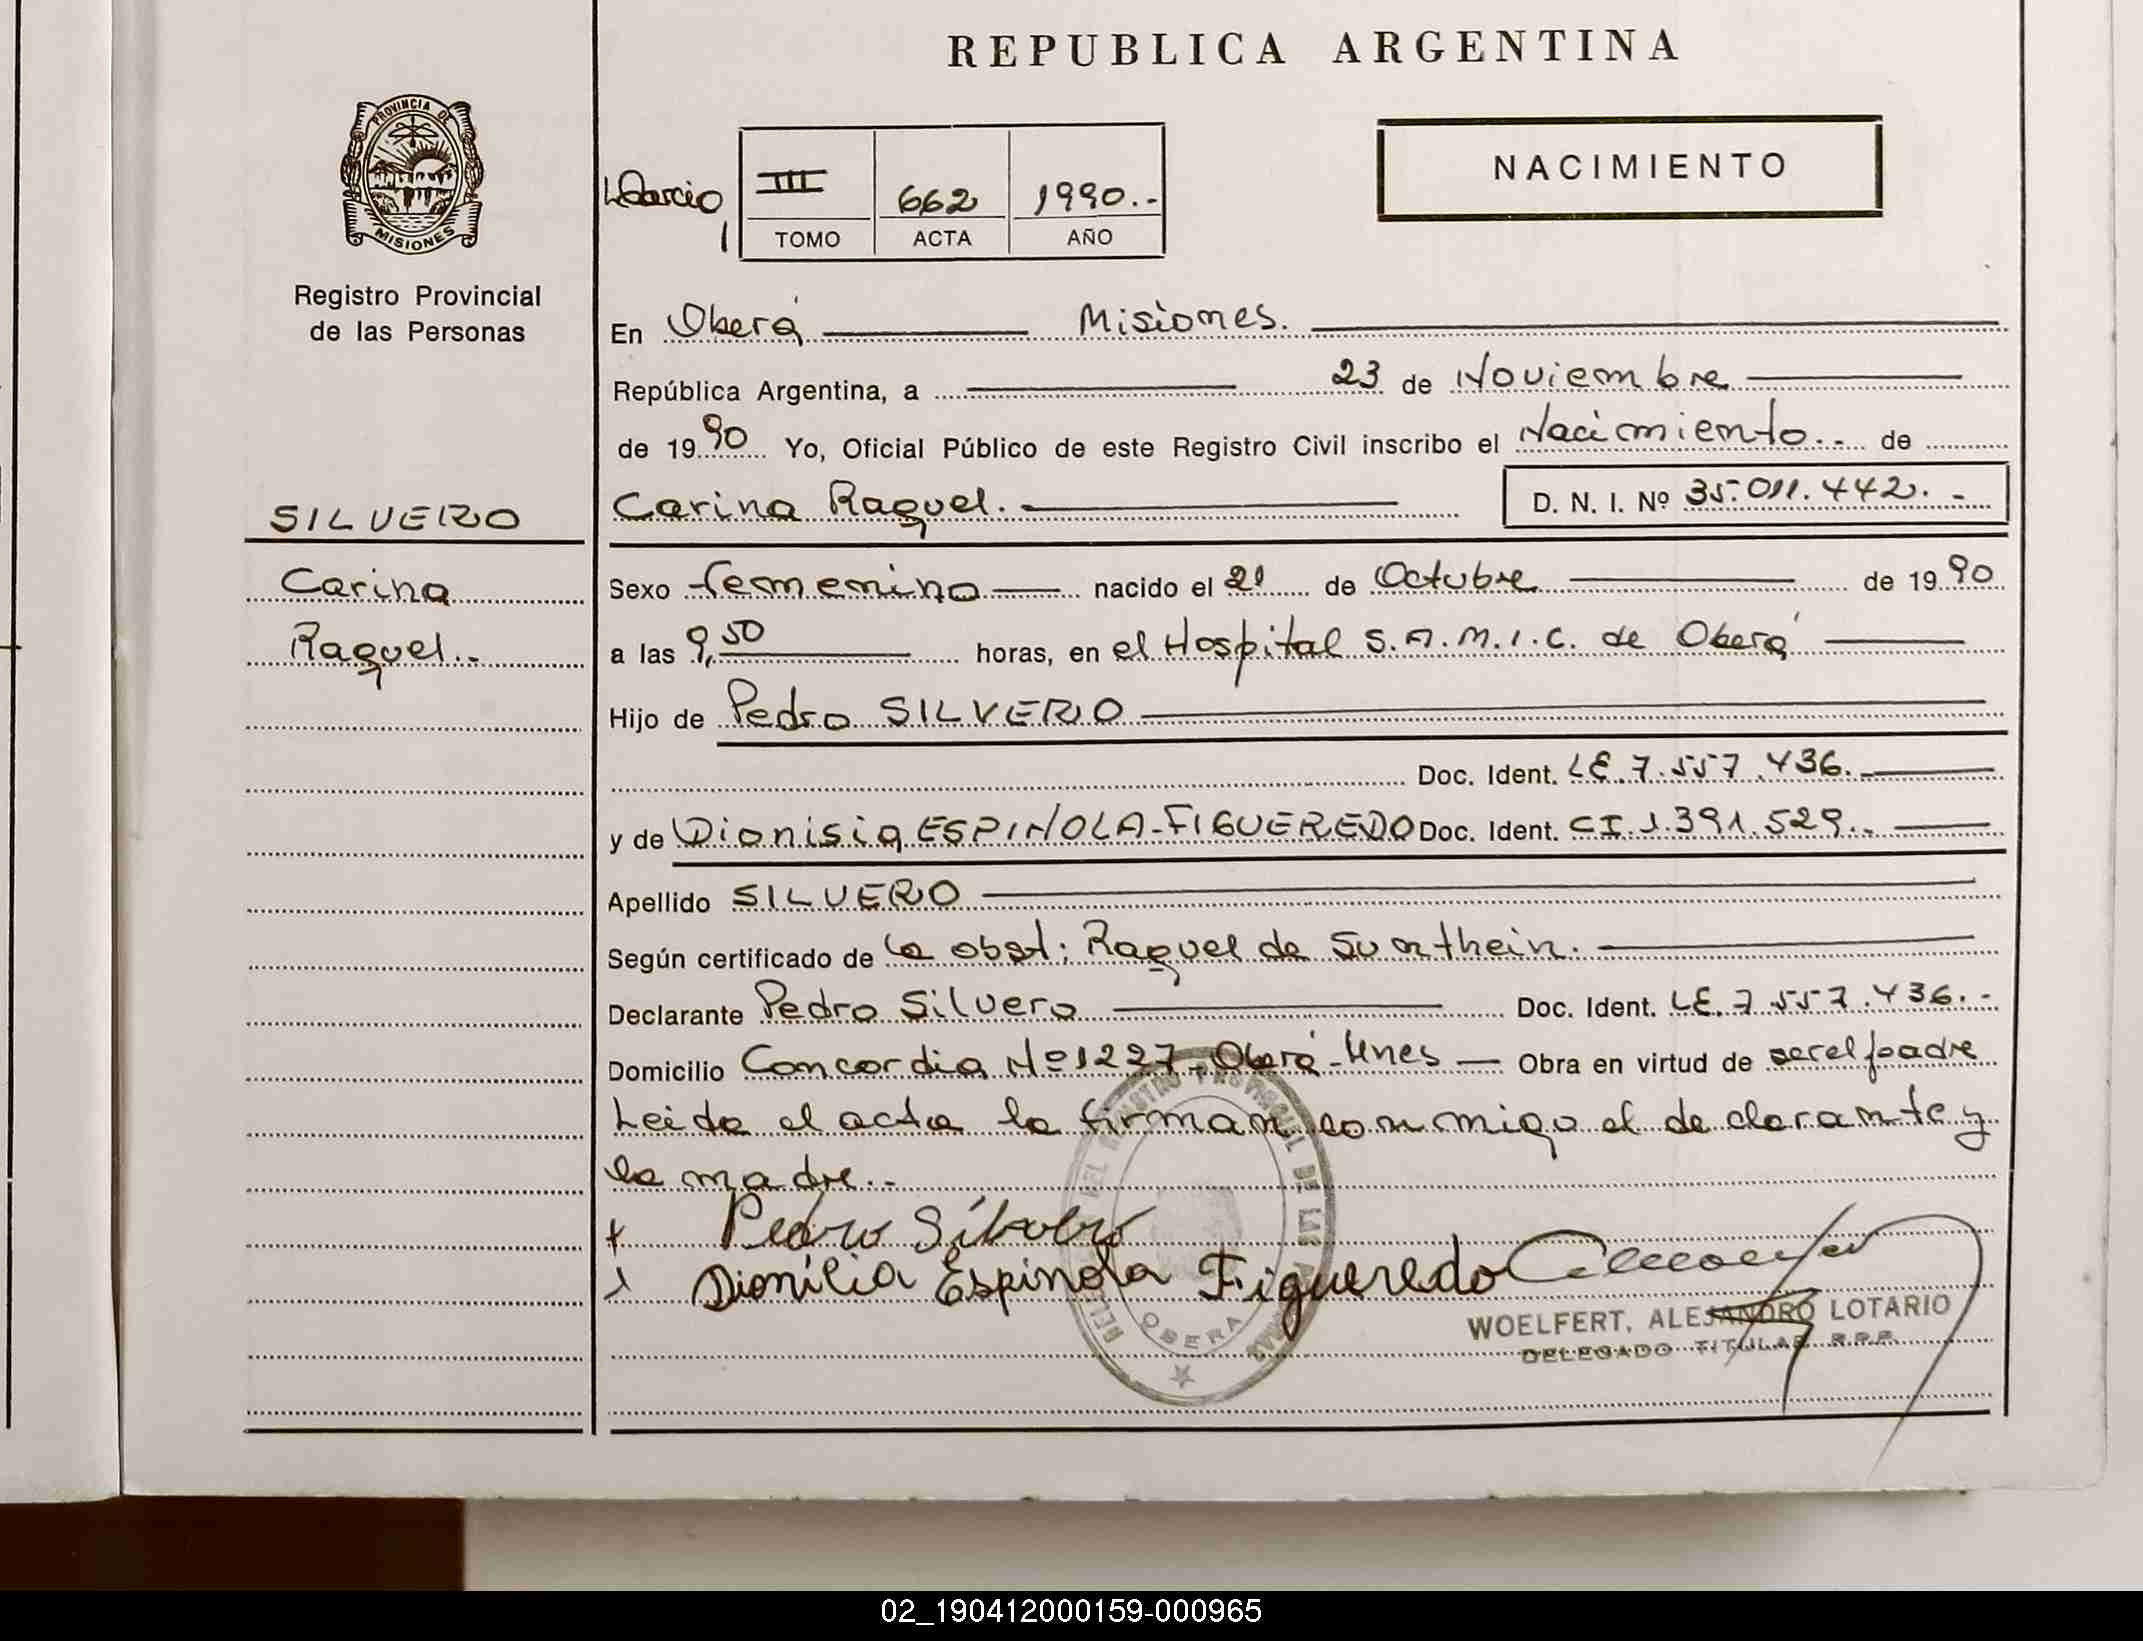 REPUBLICA ARGENTINA
PROVINCIA DE
MISIONES
Registro Provincial
de las Personas
III 662 1990.-
TOMO ACTA AÑO
NACIMIENTO
En Oberá Misiones.
República Argentina, a 23 de Noviembre
de 1990 Yo, Oficial Público de este Registro Civil inscribo el Nacimiento.- de
Carina Raquel. D. N. I. Nº 35.011.442.-
SILVERO
Carina
Raquel..
Sexo femenino nacido el 21 de Octubre de 1990
a las 9,50 horas, en el Hospital S.A.M.I.C. de Oberá
Hijo de Pedro SILVERO
Doc. Ident. LE.7.557.436.
y de Dionisia ESPINOLA-FIGUEREDO Doc. Ident. CI.1.391.529..
Apellido SILVERO
Según certificado de la obst: Raquel de
Declarante Pedro Silvero Doc. Ident. LE.7.557.436.-
Domicilio Concordia Nº1227-Oberá-Mnes Obra en virtud de ser el padre
Leida el acta la firman conmigo el declarante y
la madre..
Pedro Silvero
Dionisia Espinola Figueredo
WOELFERT, ALEJANDRO LOTARIO
DELEGADO TITULAR R.P.P.
OBERA
02_190412000159-000965